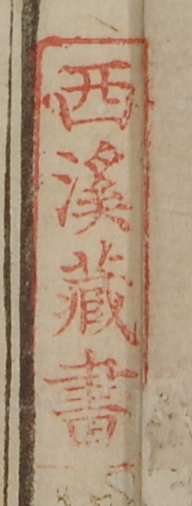 西溪藏書